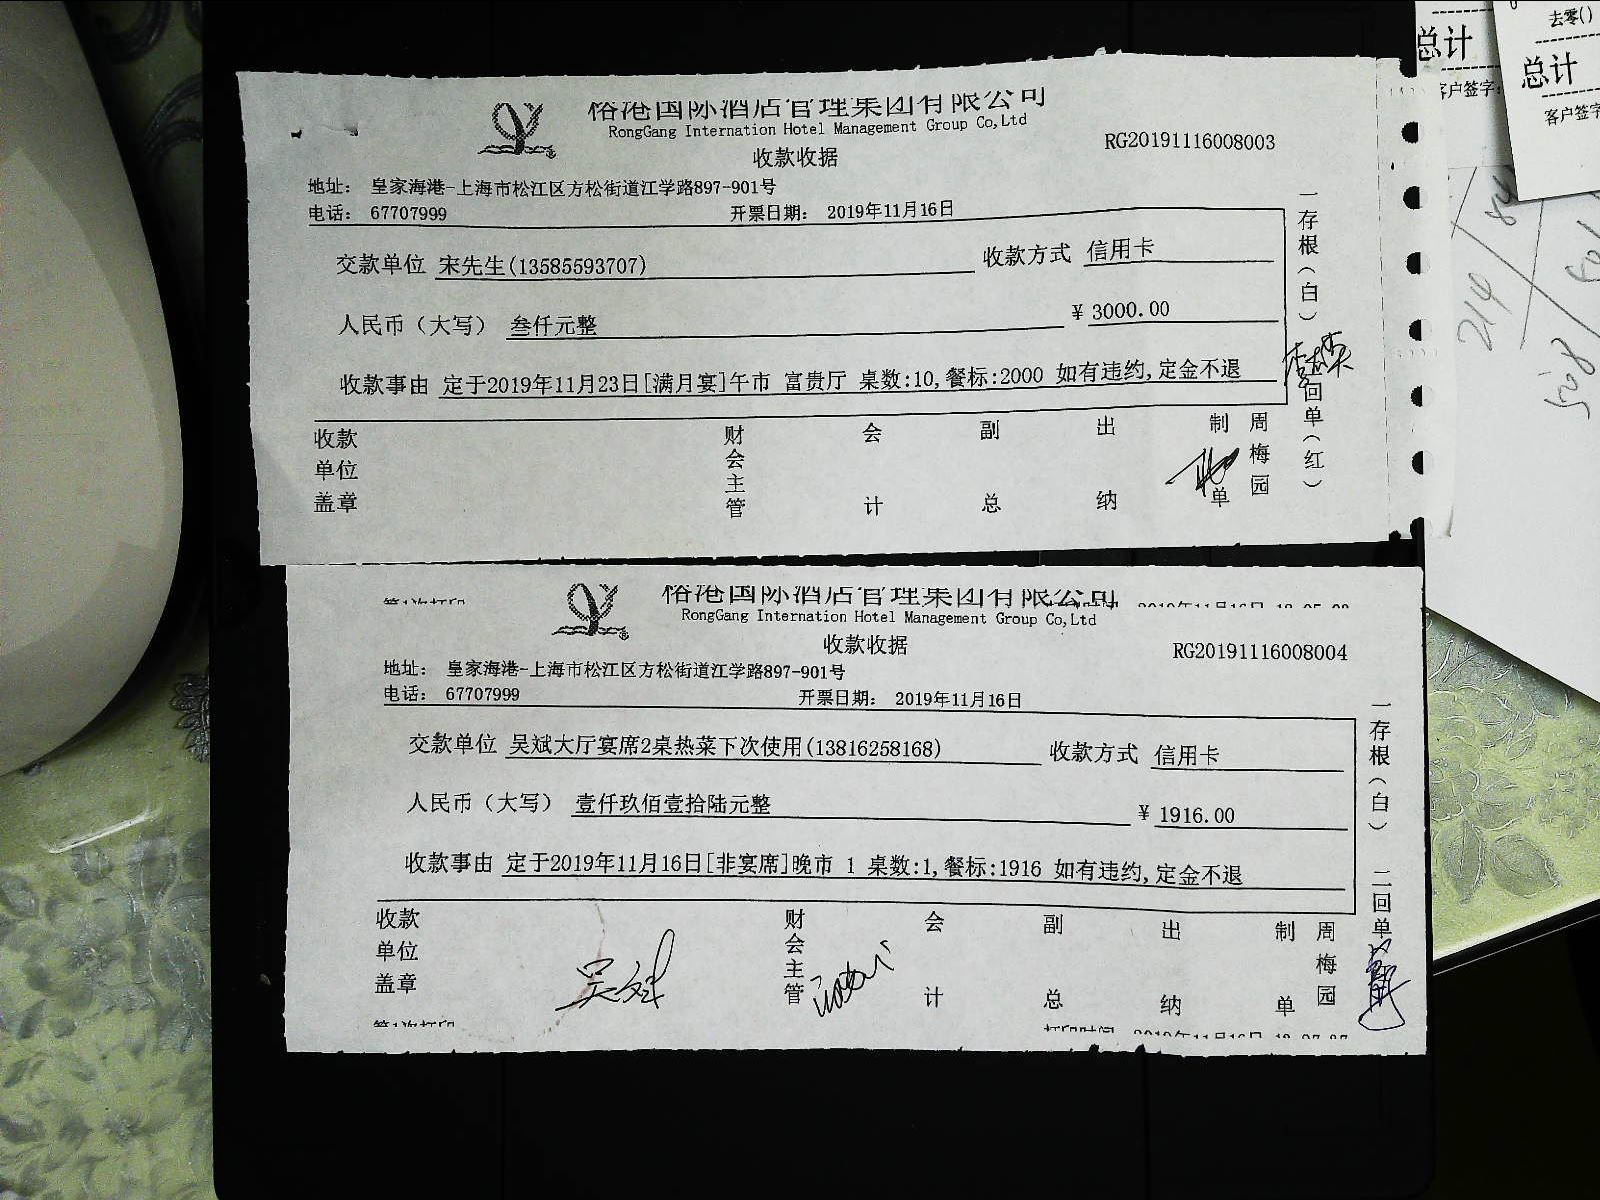 榕港国际酒店管理集团有限公司
RongGang Internation Hotel Management Group Co,Ltd
收款收据
RG20191116008003
地址： 皇家海港-上海市松江区方松街道江学路897-901号
电话： 67707999 开票日期： 2019年11月16日
交款单位 宋先生(13585593707) 收款方式 信用卡
人民币（大写） 叁仟元整 ¥ 3000.00
收款事由 定于2019年11月23日[满月宴]午市 富贵厅 桌数:10,餐标:2000 如有违约,定金不退
收款单位盖章 财会主管 会计 副总 出纳 制单 周梅园
一存根（白）
回单（红）
榕港国际酒店管理集团有限公司
RongGang Internation Hotel Management Group Co,Ltd
收款收据
RG20191116008004
地址： 皇家海港-上海市松江区方松街道江学路897-901号
电话： 67707999 开票日期： 2019年11月16日
交款单位 吴斌大厅宴席2桌热菜下次使用(13816258168) 收款方式 信用卡
人民币（大写） 壹仟玖佰壹拾陆元整 ¥ 1916.00
收款事由 定于2019年11月16日[非宴席]晚市 1 桌数:1,餐标:1916 如有违约,定金不退
收款单位盖章 吴斌 财会主管 会计 副总 出纳 制单 周梅园
一存根（白） 二回单
总计
客户签字:
去零()
总计
客户签字
214
508